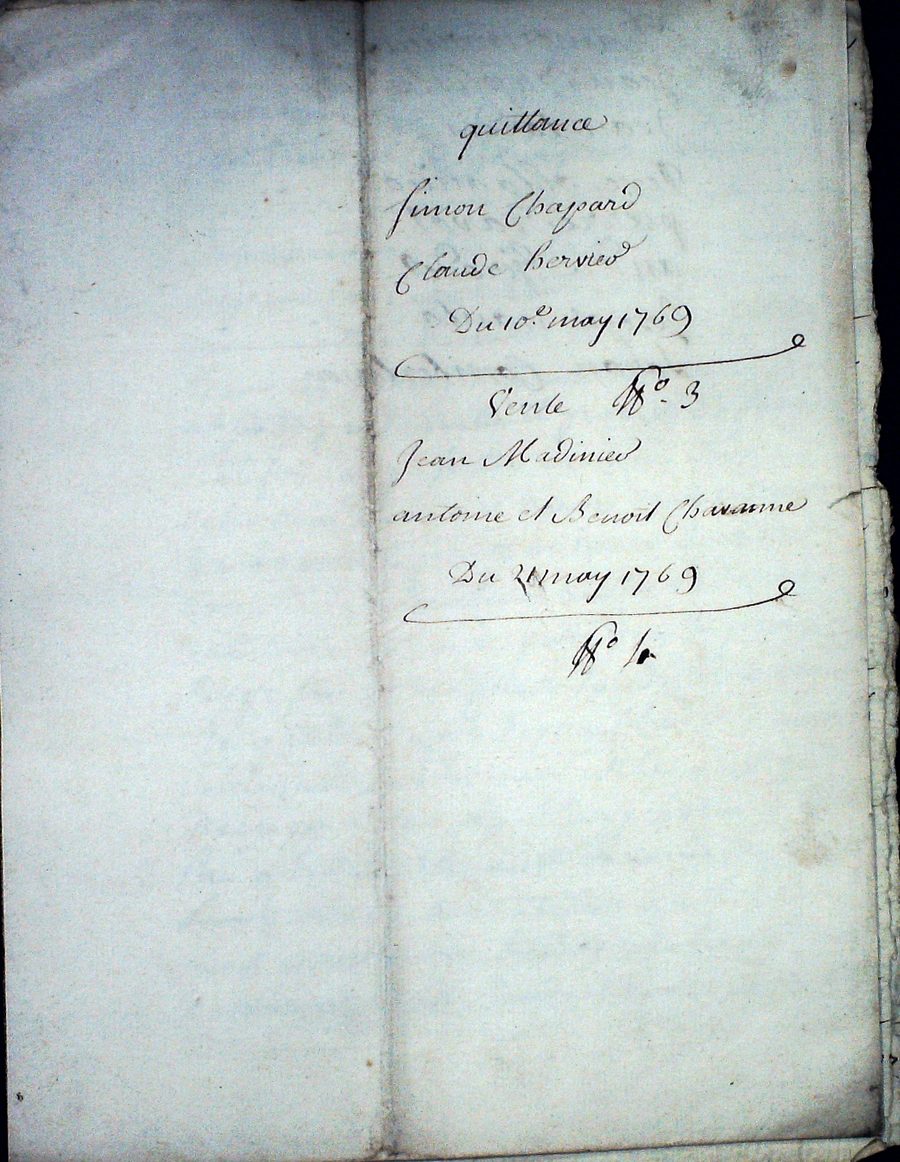 quittance
Simon Chapard
Claude hervier
Du 10e. may 1769
Vente No. 3
Jean Madinier
antoine et Benoit Chavanne
Du 21 may 1769
No 4